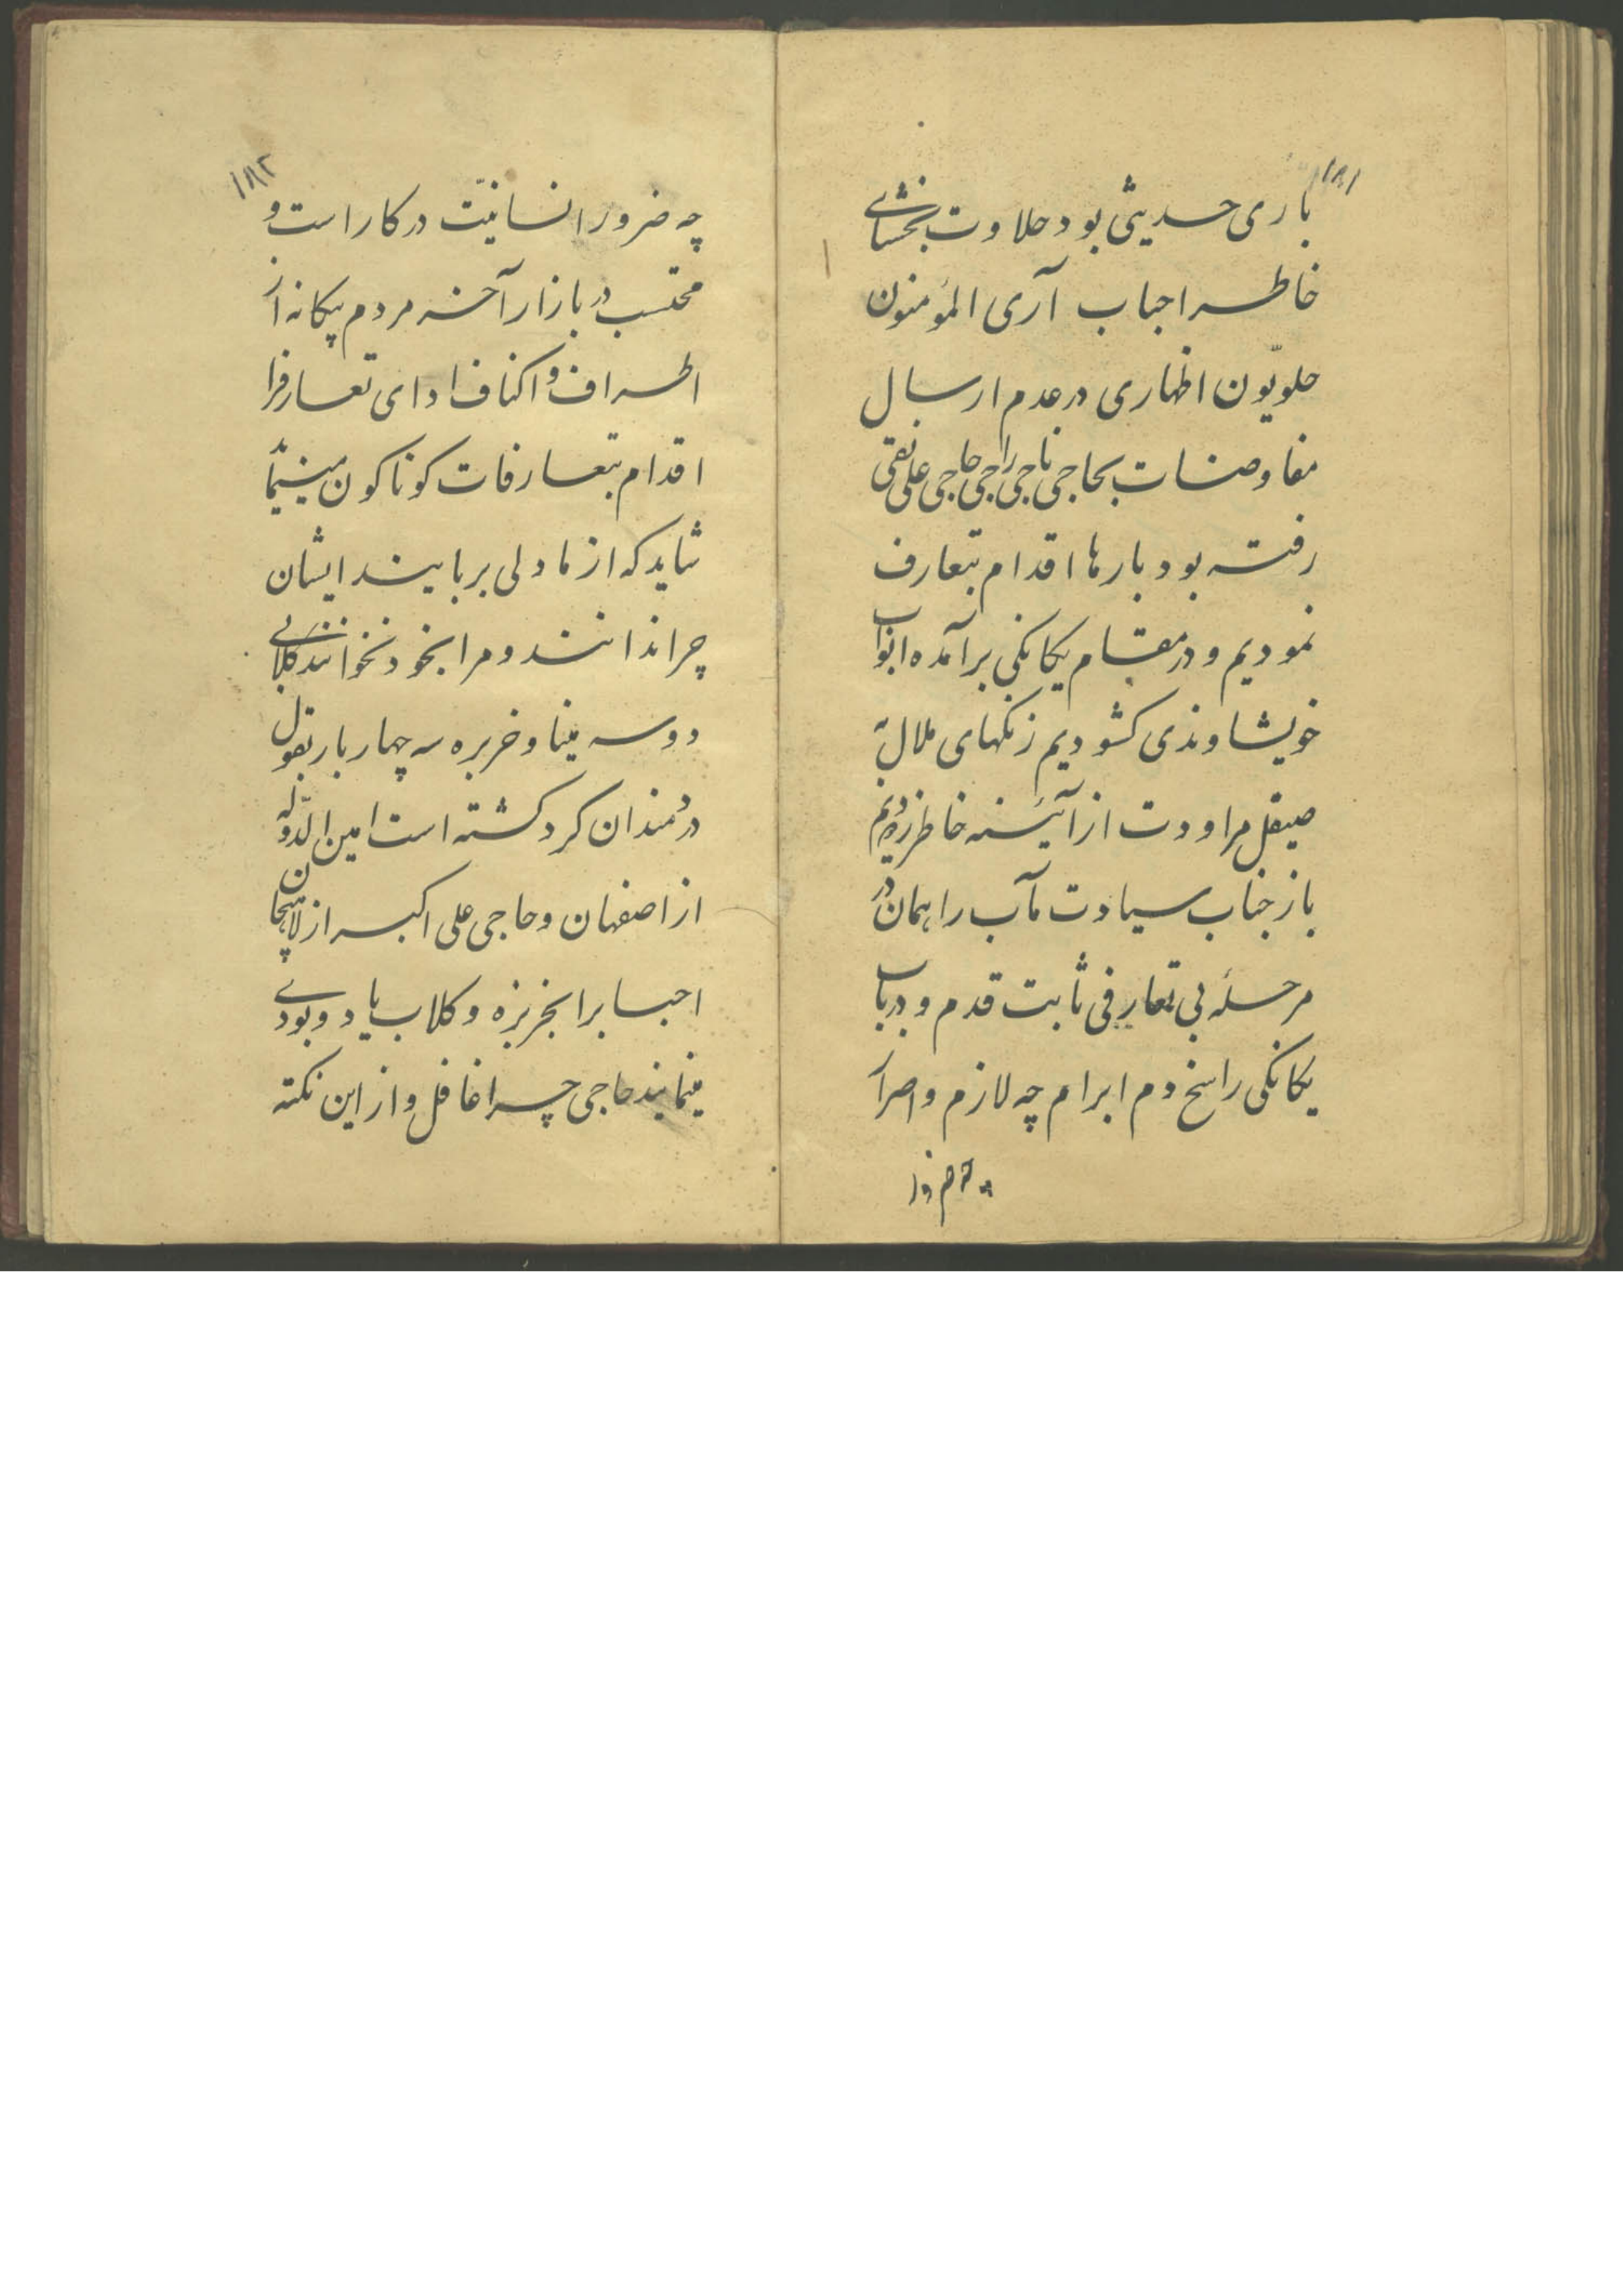 ۱۸۱
باری حدیثی بود حلاوت بخشای
خاطر احباب آری المؤمنون
حلویّون اظهاری در عدم ارسال
مفاوضات بحاجی ناجی راجی حاجی علی نقی
رفته بود بارها اقدام بتعارف
نمودیم و در مقام یکانکی برآمده ابواب
خویشاوندی کشودیم زنکهای ملال به
صیقل مراودت از آئینه خاطر زدودیم
باز جناب سیادت مآب را همان در
مرحله بی تعارفی ثابت قدم و در باب
یکانکی راسخ دم ابرام چه لازم و اصرار
چه ضرور
۱۸۲
چه ضرور انسانیّت در کار است و
محتسب در بازار آخر مردم بیکانه از
اطراف و اکناف ادای تعارف را
اقدام بتعارفات کوناکون مینمایند
شاید که از ما دلی بربایند ایشان
چرا ندانند و مرا بخود نخوانند کلابی
دو سه مینا و خربزه سه چهار بار بقول
دردمندان کرد کشته است امین الدّوله
از اصفهان و حاجی علی اکبر از لاهیجان
احبا را بخربزه و کلاب یاد و بودی
مینمایند حاجی چرا غافل و از این نکته